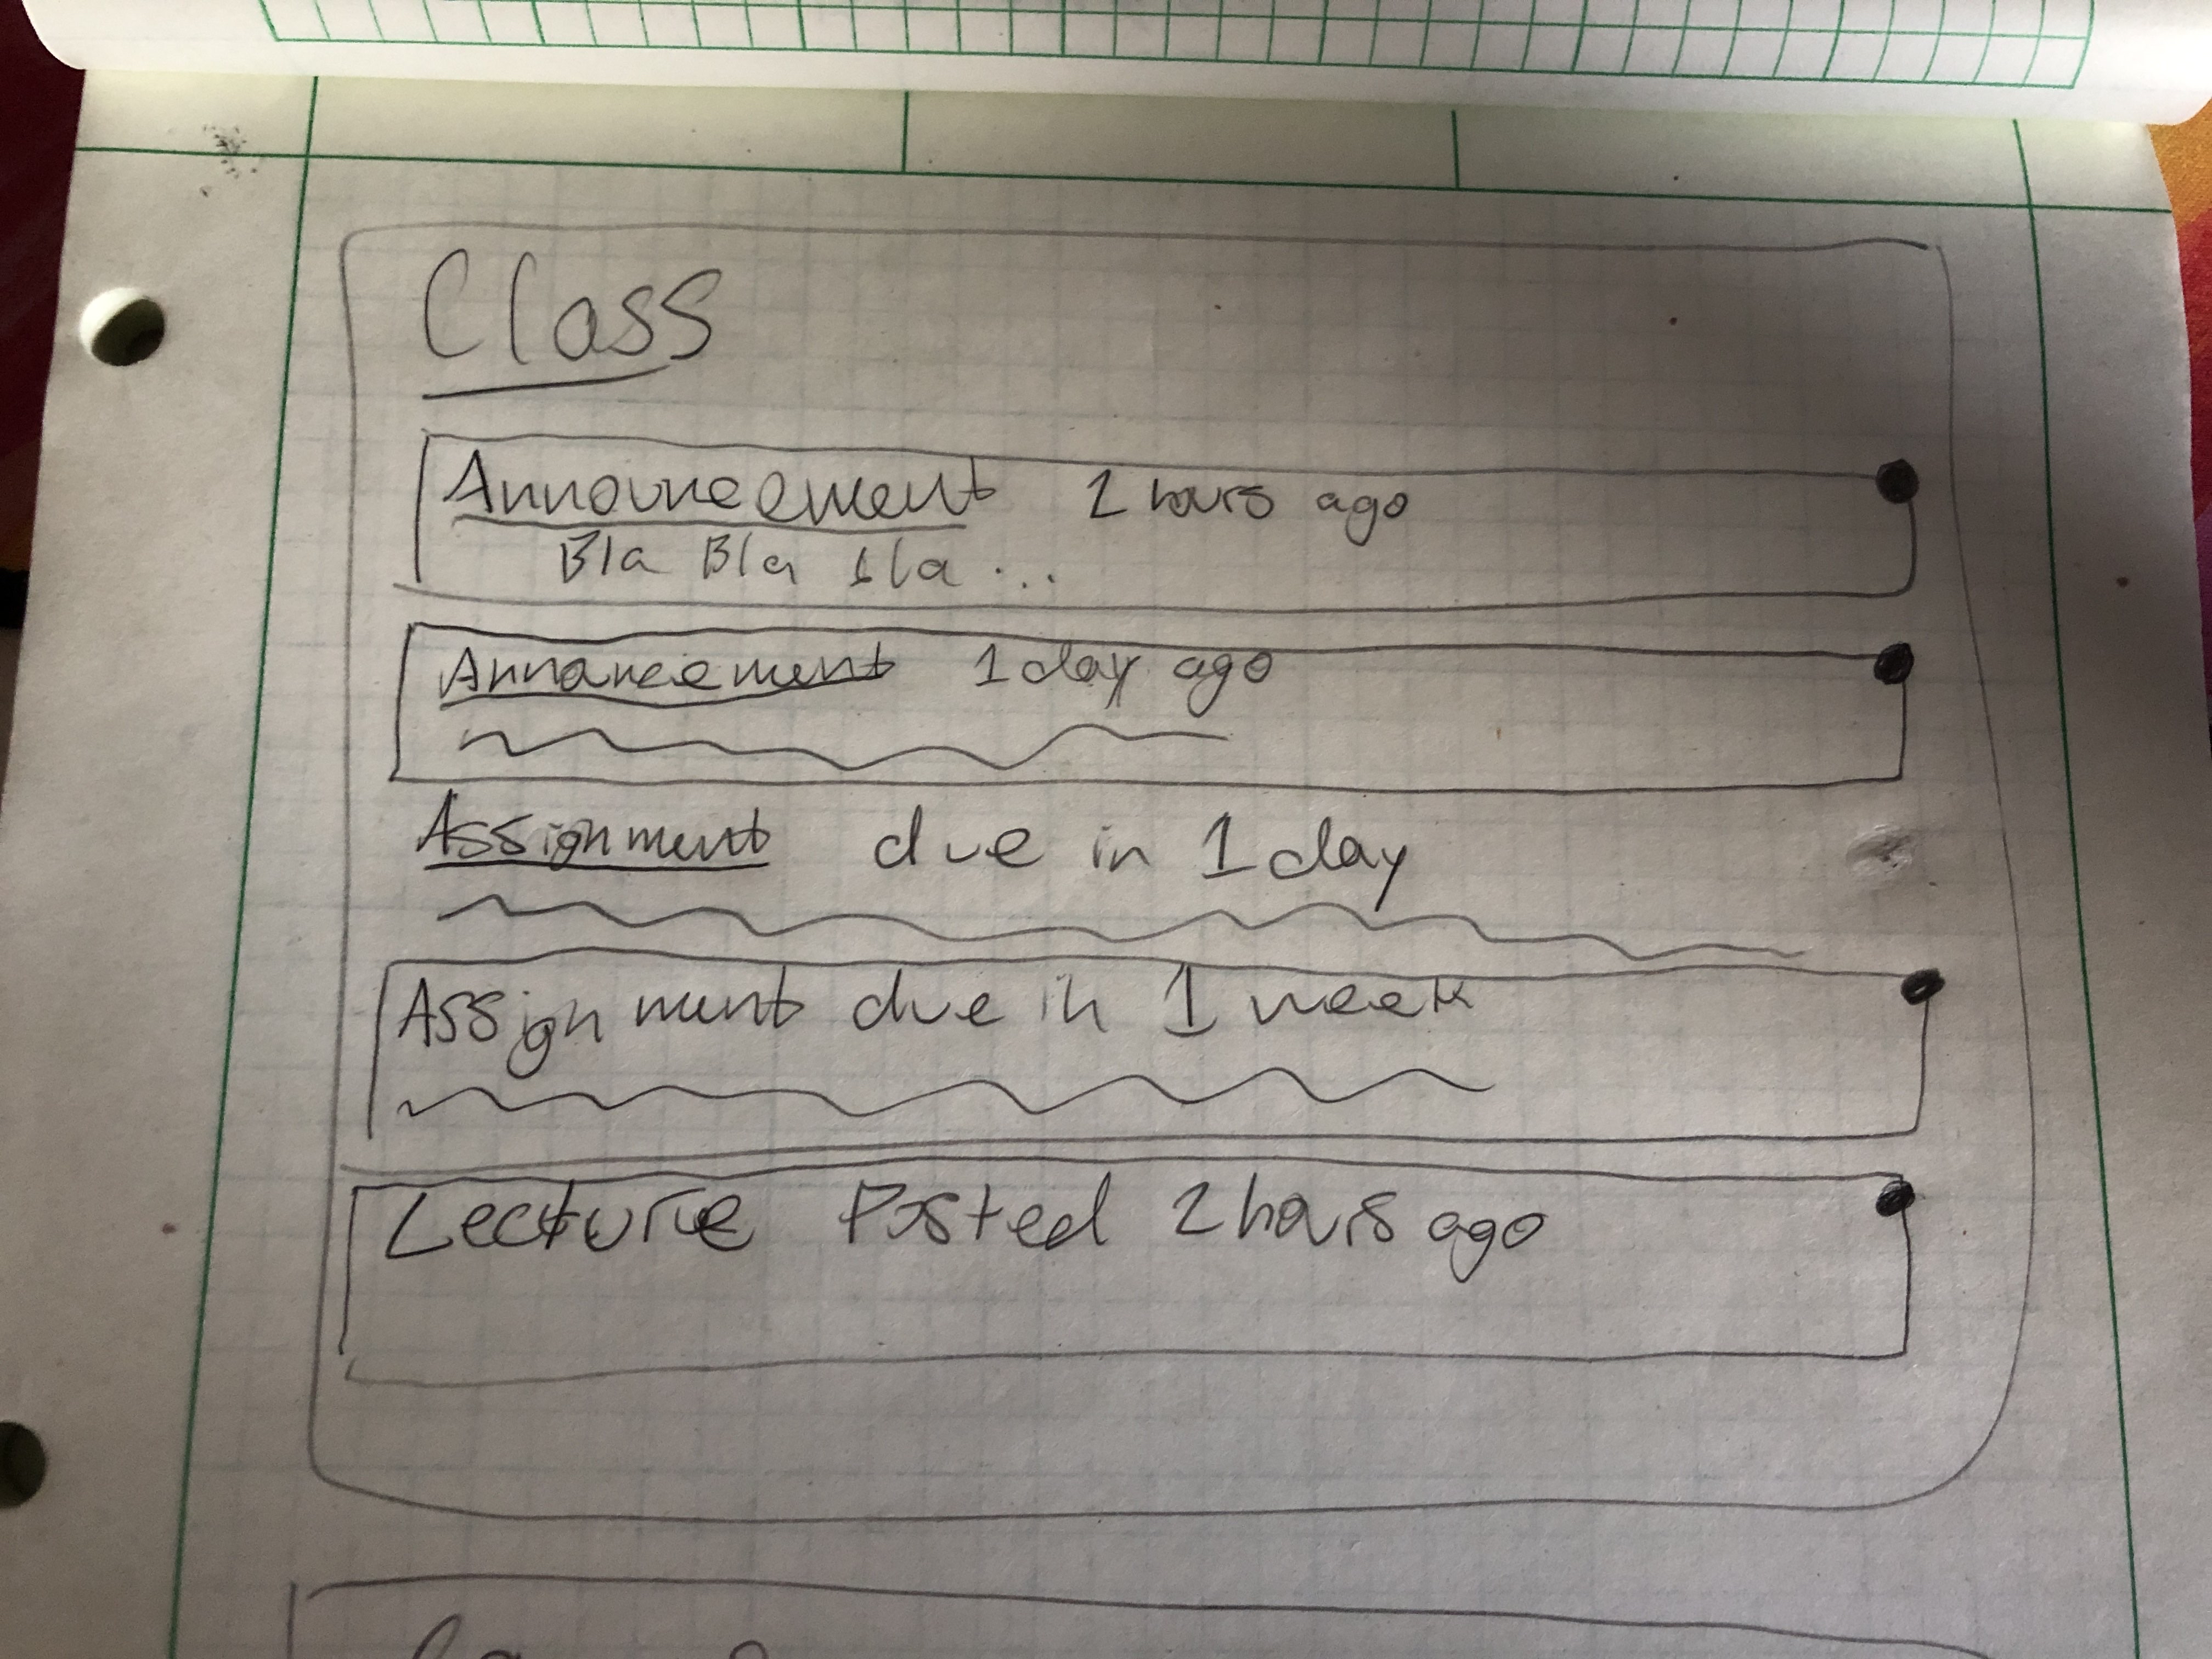 Class
Announcement 2 hours ago
Bla Bla Bla...
Annoncement 1 day ago
Assignment due in 1 day
Assignment due in 1 week
Lecture Posted 2 hours ago